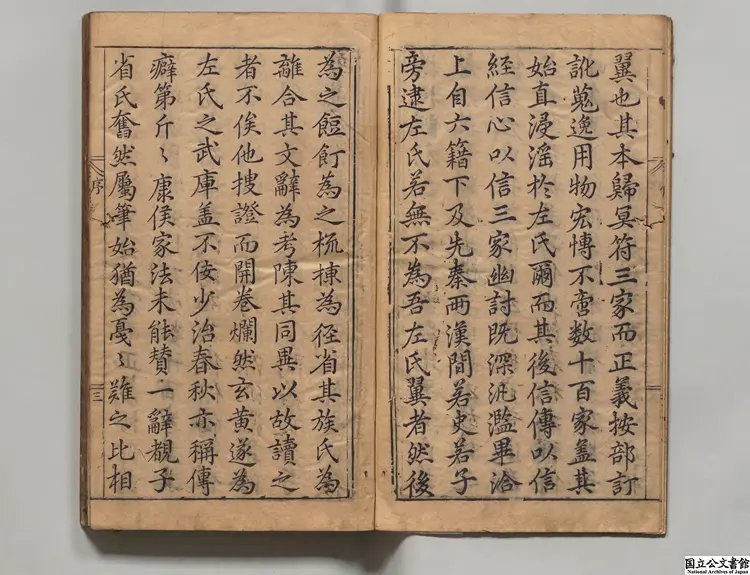 翼也其本歸冥符三家而正義按部訂
訛蒐逸用物宏愽不啻数十百家盖其
始直浸滛扵左氏爾而其後信傳以信
經信心以信三家幽討既深汎濫畢洽
上自六籍下及先秦两漢間若史若子
旁逮左氏若無不為吾左氏翼者然後
為之餖飣為之梳揀為徑省其族氏為
離合其文辭為考陳其同異以故讀之
者不俟他搜證而開卷爛然玄黄遂為
左氏之武庫盖不佞少治春秋亦稱傳
癖第斤〻康侯家法未能賛一辭覩子
省氏奮然屬筆始猶為戞〻難之比相
序
三
国立公文書館
National Archives of Japan